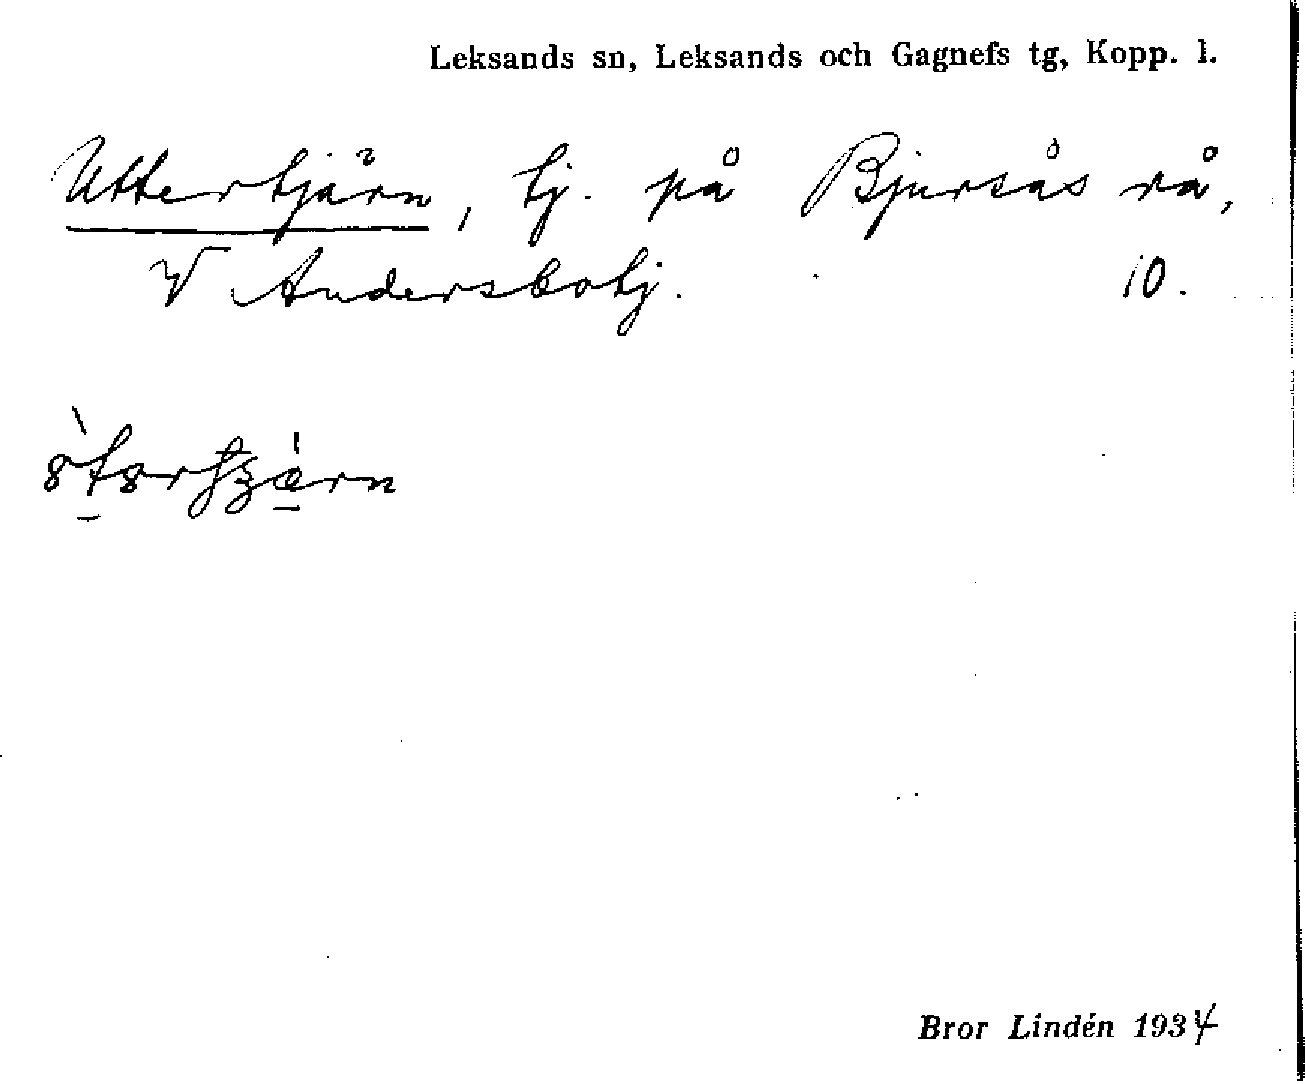 Leksands sn, Leksands och Gagnefs tg, Kopp. l.
Uttertjärn, tj. på Bjursås rå,
V Andersbotj. 10.
Bror Lindén 1934